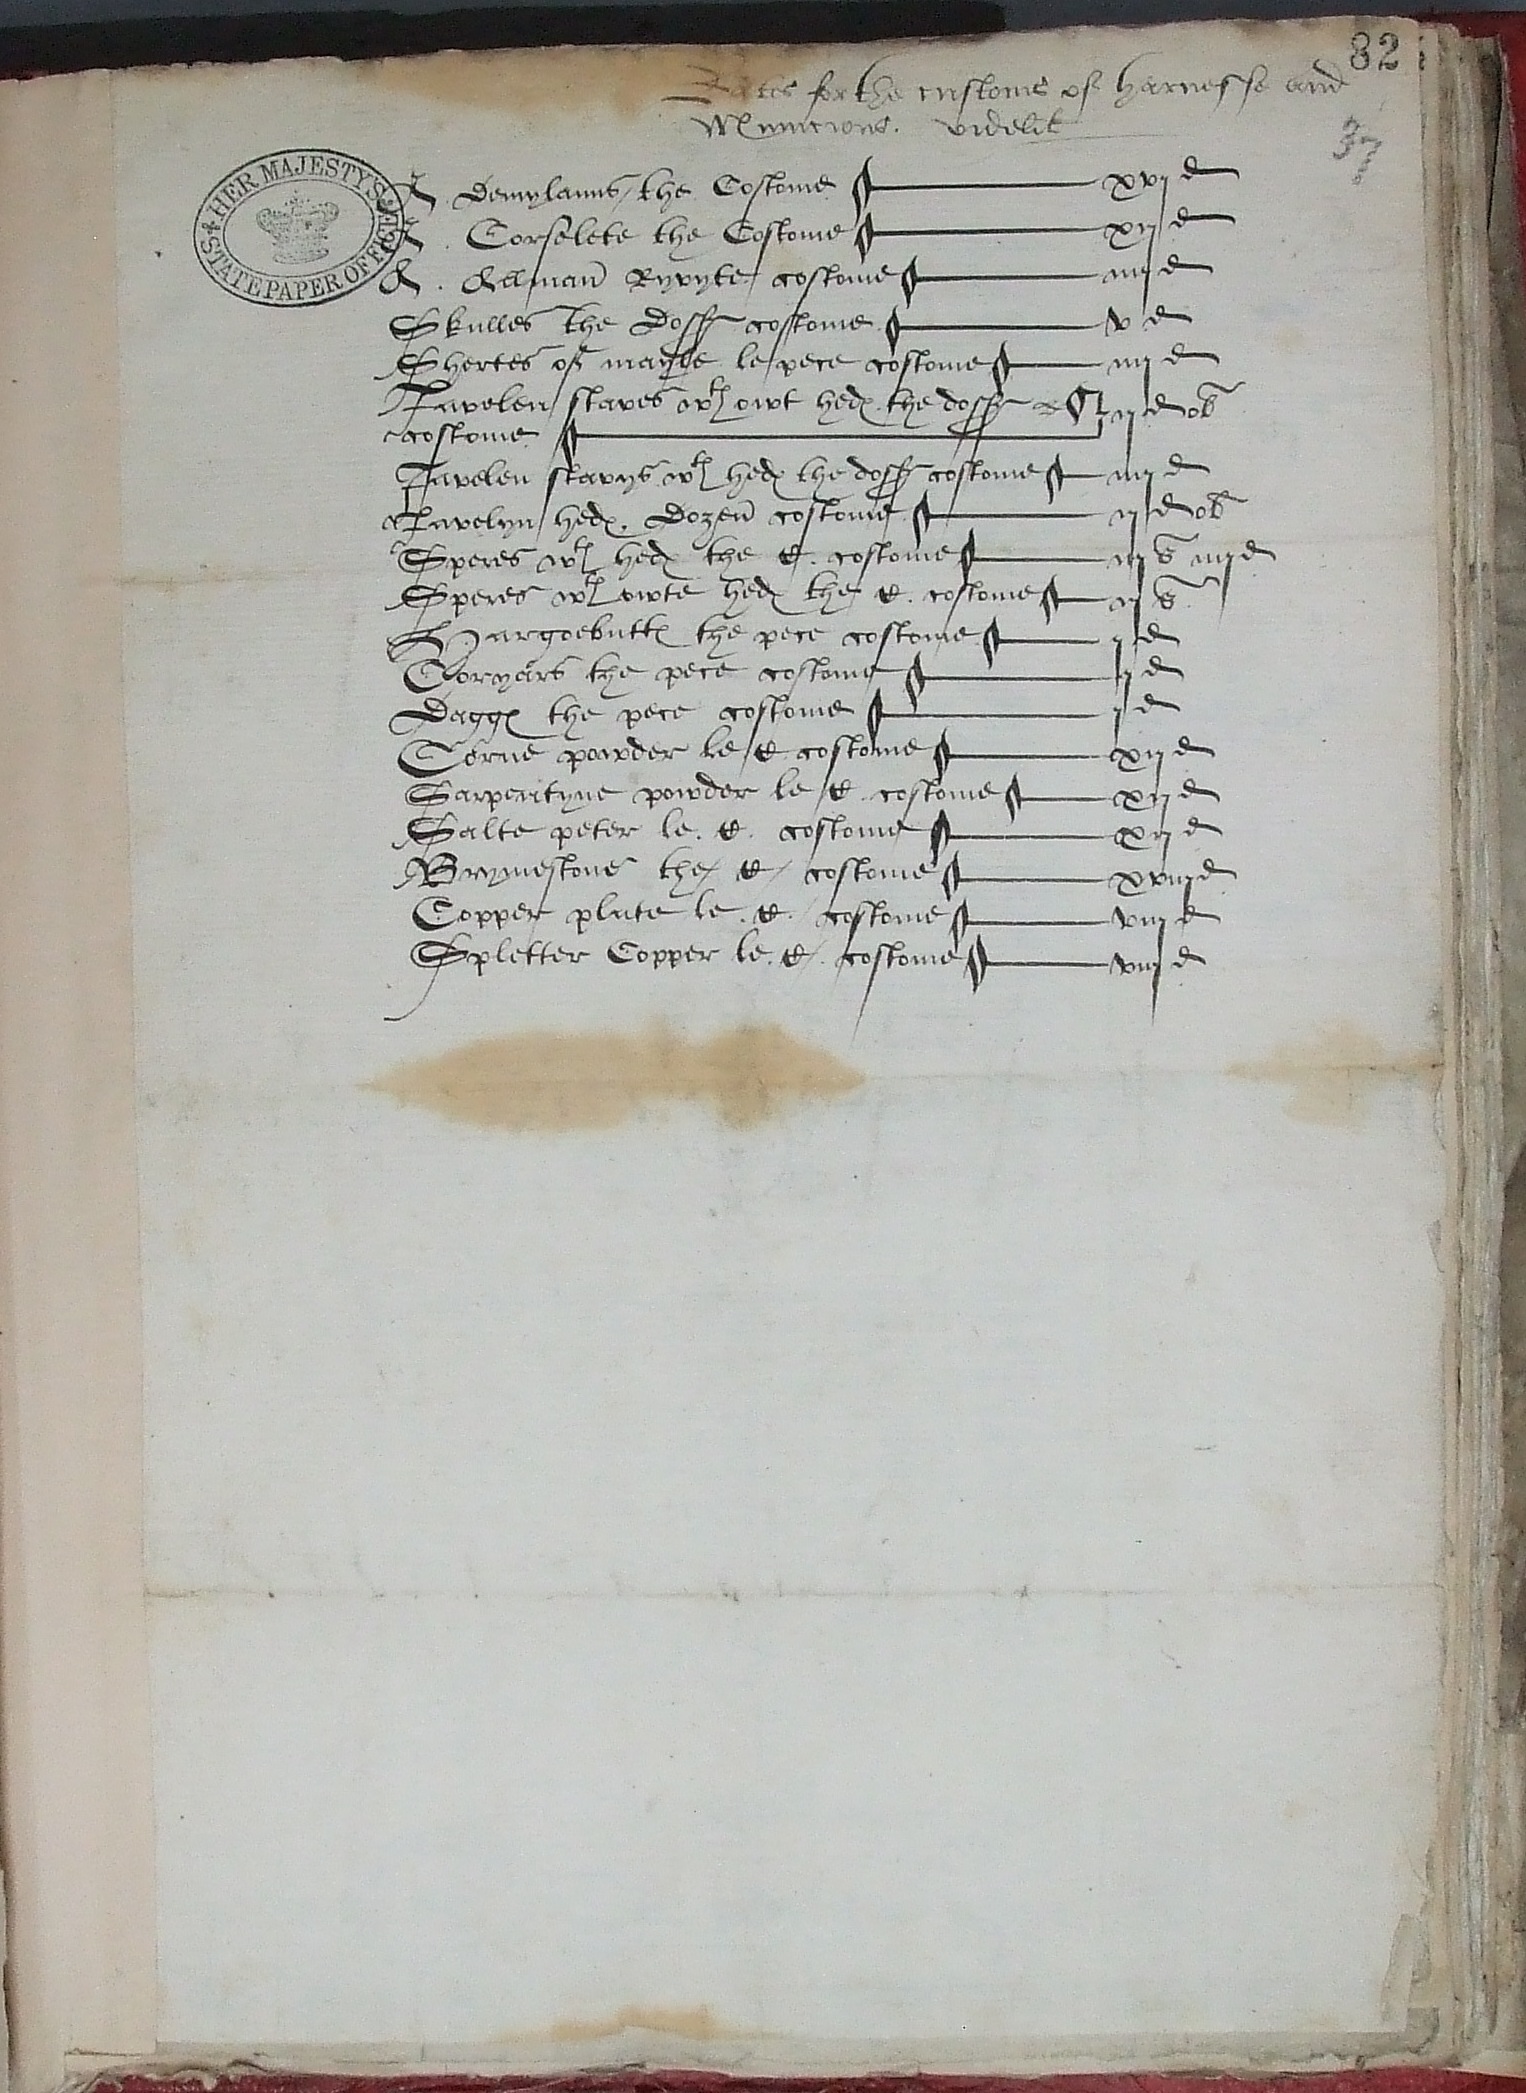 82
Rates for the customs of harnesse and
Munucions. videlit
37
HER MAJESTY'S STATE PAPER OFFICE
A Demylanns the Costome xvj d
A. Corselete the Costome xij d
A. Allman Ryvyte costome iiij d
Skulles the Doss costome v d
Shertes of mayle le pece costome iiij d
Javelen staves wt owt hedes the doss
costome ij d ob
Javelen stavys wt hedes the doss costome iiij d
Javelyn hedes. Dozen costome ij d ob
Speres wt hedes the C. costome iij s iiij d
Speres wt owte hedes the C. costome ij s
Hargoebuttes the pece costome ij d
Coryars the pece costome ij d
Dagges the pece costome ij d
Corne powder le C costome xij d
Sarpentyne powder le C. costome xij d
Salte peter le. C. costome xij d
Brymestone the C costome xviij d
Copper plate le. C. costome viij d
Spletter Copper le. C. costome viij d